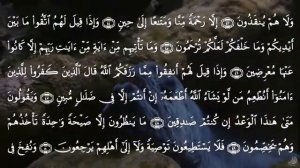 وَلَا هُمْ يُنقَذُونَ إِلَّا رَحْمَةً مِّنَّا وَمَتَٰعًا إِلَىٰ حِينٍ وَإِذَا قِيلَ لَهُمُ ٱتَّقُوا۟ مَا بَيْنَ
أَيْدِيكُمْ وَمَا خَلْفَكُمْ لَعَلَّكُمْ تُرْحَمُونَ وَمَا تَأْتِيهِم مِّنْ ءَايَةٍ مِّنْ ءَايَٰتِ رَبِّهِمْ إِلَّا كَانُوا۟
عَنْهَا مُعْرِضِينَ وَإِذَا قِيلَ لَهُمْ أَنفِقُوا۟ مِمَّا رَزَقَكُمُ ٱللَّهُ قَالَ ٱلَّذِينَ كَفَرُوا۟ لِلَّذِينَ
ءَامَنُوٓا۟ أَنُطْعِمُ مَن لَّوْ يَشَآءُ ٱللَّهُ أَطْعَمَهُۥٓ إِنْ أَنتُمْ إِلَّا فِى ضَلَٰلٍ مُّبِينٍ وَيَقُولُونَ
مَتَىٰ هَٰذَا ٱلْوَعْدُ إِن كُنتُمْ صَٰدِقِينَ مَا يَنظُرُونَ إِلَّا صَيْحَةً وَٰحِدَةً تَأْخُذُهُمْ
وَهُمْ يَخِصِّمُونَ فَلَا يَسْتَطِيعُونَ تَوْصِيَةً وَلَآ إِلَىٰٓ أَهْلِهِمْ يَرْجِعُونَ وَنُفِخَ فِى